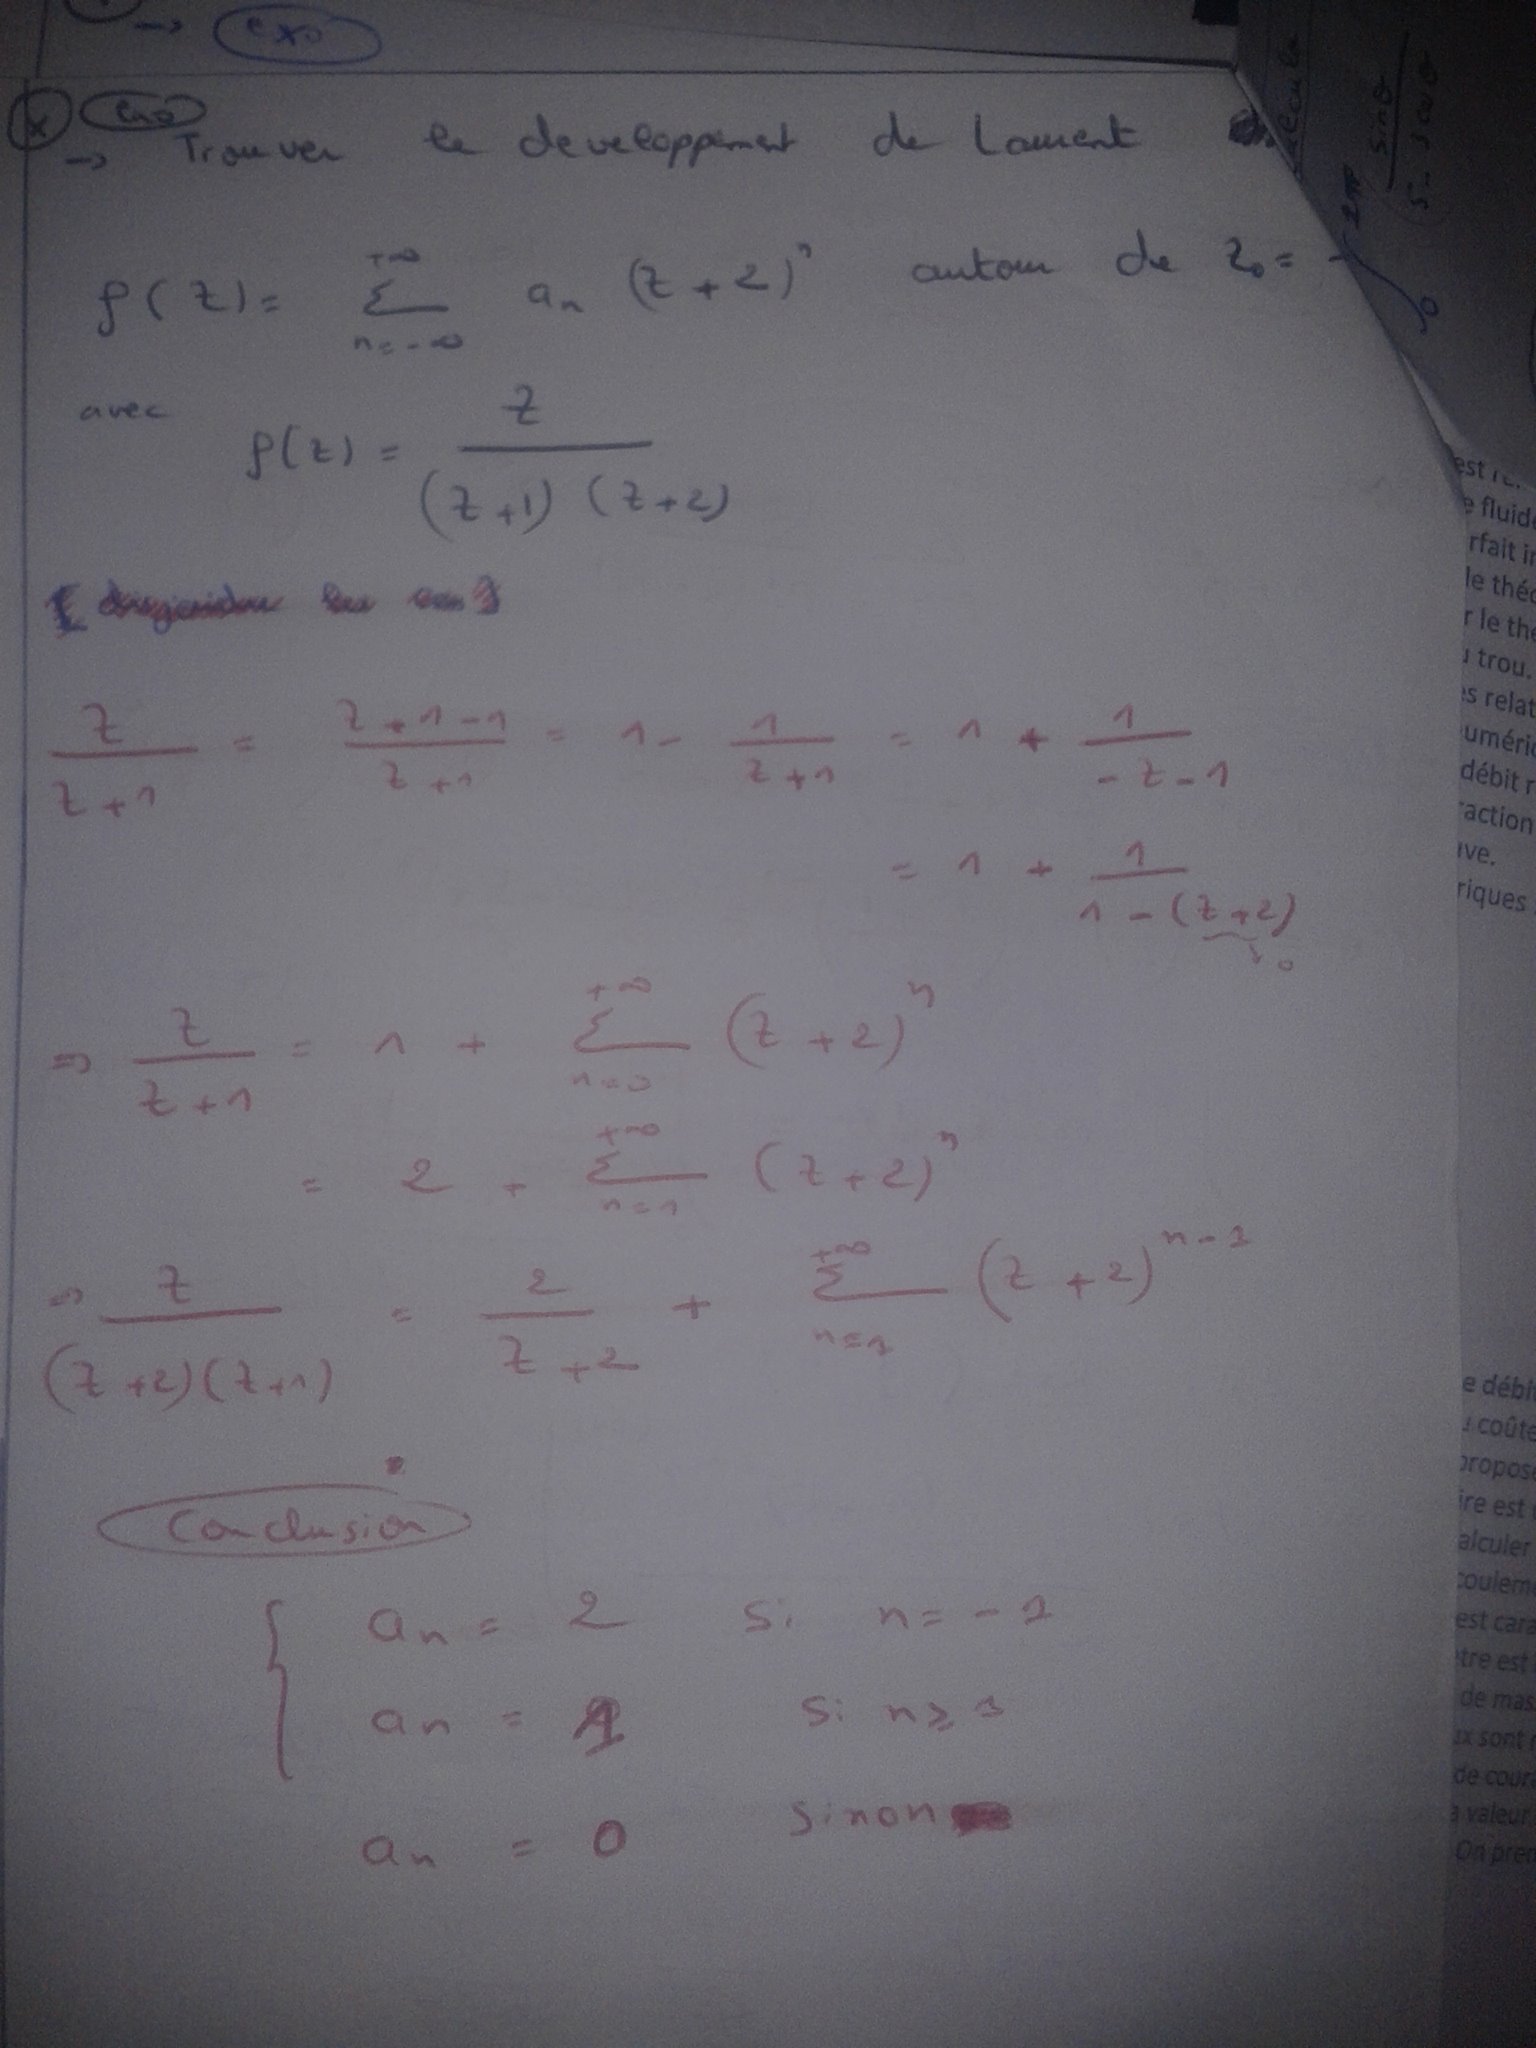 → exo
x exo
→ Trouver le developpement de Laurent
f(z) = Σ_{n=-∞}^{+∞} a_n (z+2)^n autour de z_0 = -
avec f(z) = z / ((z+1)(z+2))
z/(z+1) = (z+1-1)/(z+1) = 1 - 1/(z+1) = 1 + 1/(-z-1)
= 1 + 1/(1-(z+2))
↘ 0
⇒ z/(z+1) = 1 + Σ_{n=0}^{+∞} (z+2)^n
= 2 + Σ_{n=1}^{+∞} (z+2)^n
⇒ z/((z+2)(z+1)) = 2/(z+2) + Σ_{n=1}^{+∞} (z+2)^{n-1}
Conclusion
a_n = 2 si n = -1
a_n = 1 si n ≥ 1
a_n = 0 sinon
sin θ
5-
2π
0
est
e fluid
rfait in
le théo
r le thé
u trou.
es relat
uméric
débit r
raction
uve.
riques
e débit
u coûte
propose
ire est
alculer
coulem
est cara
être est
de mas
ux sont
de cour
a valeur
On pren